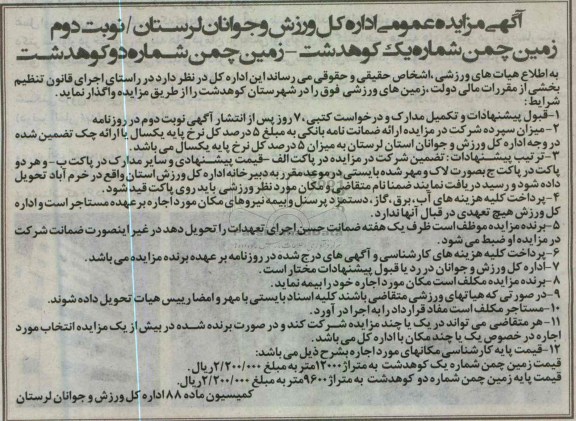 آگهی مزایده عمومی اداره کل ورزش و جوانان لرستان / نوبت دوم
زمین چمن شماره یک کوهدشت – زمین چمن شماره دو کوهدشت
به اطلاع هیات های ورزشی، اشخاص حقیقی و حقوقی می رساند این اداره کل در نظر دارد در راستای اجرای قانون تنظیم
بخشی از مقررات مالی دولت، زمین های ورزشی فوق را در شهرستان کوهدشت را از طریق مزایده واگذار نماید.
شرایط:
۱–قبول پیشنهادات و تکمیل مدارک و درخواست کتبی ۷، روز پس از انتشار آگهی نوبت دوم در روزنامه
۲–میزان سپرده شرکت در مزایده ارائه ضمانت نامه بانکی به مبلغ ۵ درصد کل نرخ پایه یکسال یا ارائه چک تضمین شده
در وجه اداره کل ورزش و جوانان استان لرستان به میزان ۵ درصد کل نرخ پایه یکسال می باشد.
۳–ترتیب پیشنهادات: تضمین شرکت در مزایده در پاکت الف –قیمت پیشنهادی و سایر مدارک در پاکت ب– و هر دو
پاکت در پاکت ج بصورت لاک و مهر شده بایستی در موعد مقرر به دبیرخانه اداره کل ورزش استان واقع در خرم آباد تحویل
داده شود و رسید دریافت نمایند ضمنا نام متقاضی و مکان مورد نظر ورزشی باید روی پاکت قید شود.
۴–پرداخت کلیه هزینه های آب، برق، گاز، دستمزد پرسنل و بیمه نیروهای مکان مورد اجاره بر عهده مستاجر است و اداره
کل ورزش هیچ تعهدی در قبال آنها ندارد.
۵–برنده مزایده موظف است ظرف یک هفته ضمانت حسن اجرای تعهدات را تحویل دهد در غیر اینصورت ضمانت شرکت
در مزایده او ضبط می شود.
۶–پرداخت کلیه هزینه های کارشناسی و آگهی های درج شده در روزنامه بر عهده برنده مزایده می باشد.
۷–اداره کل ورزش و جوانان در رد یا قبول پیشنهادات مختار است.
۸–برنده مزایده مکلف است مکان مورد اجاره خود را بیمه نماید.
۹–در صورتی که هیاتهای ورزشی متقاضی باشند کلیه اسناد بایستی با مهر و امضا رییس هیات تحویل داده شوند.
۱۰–مستاجر مکلف است مفاد قرارداد را به اجرا در آورد.
۱۱–هر متقاضی می تواند در یک یا چند مزایده شرکت کند و در صورت برنده شده در بیش از یک مزایده انتخاب مورد
اجاره در خصوص یک یا چند مکان با اداره کل می باشد.
۱۲–قیمت پایه کارشناسی مکانهای مورد اجاره بشرح ذیل می باشد:
قیمت زمین چمن شماره یک کوهدشت به متراژ ۱۲۰۰۰ متر به مبلغ ۲/۲۰۰/۰۰۰ ریال.
قیمت پایه زمین چمن شماره دو کوهدشت به متراژ ۹۶۰۰ متر به مبلغ ۲/۲۰۰/۰۰۰ ریال.
کمیسیون ماده ۸۸ اداره کل ورزش و جوانان لرستان